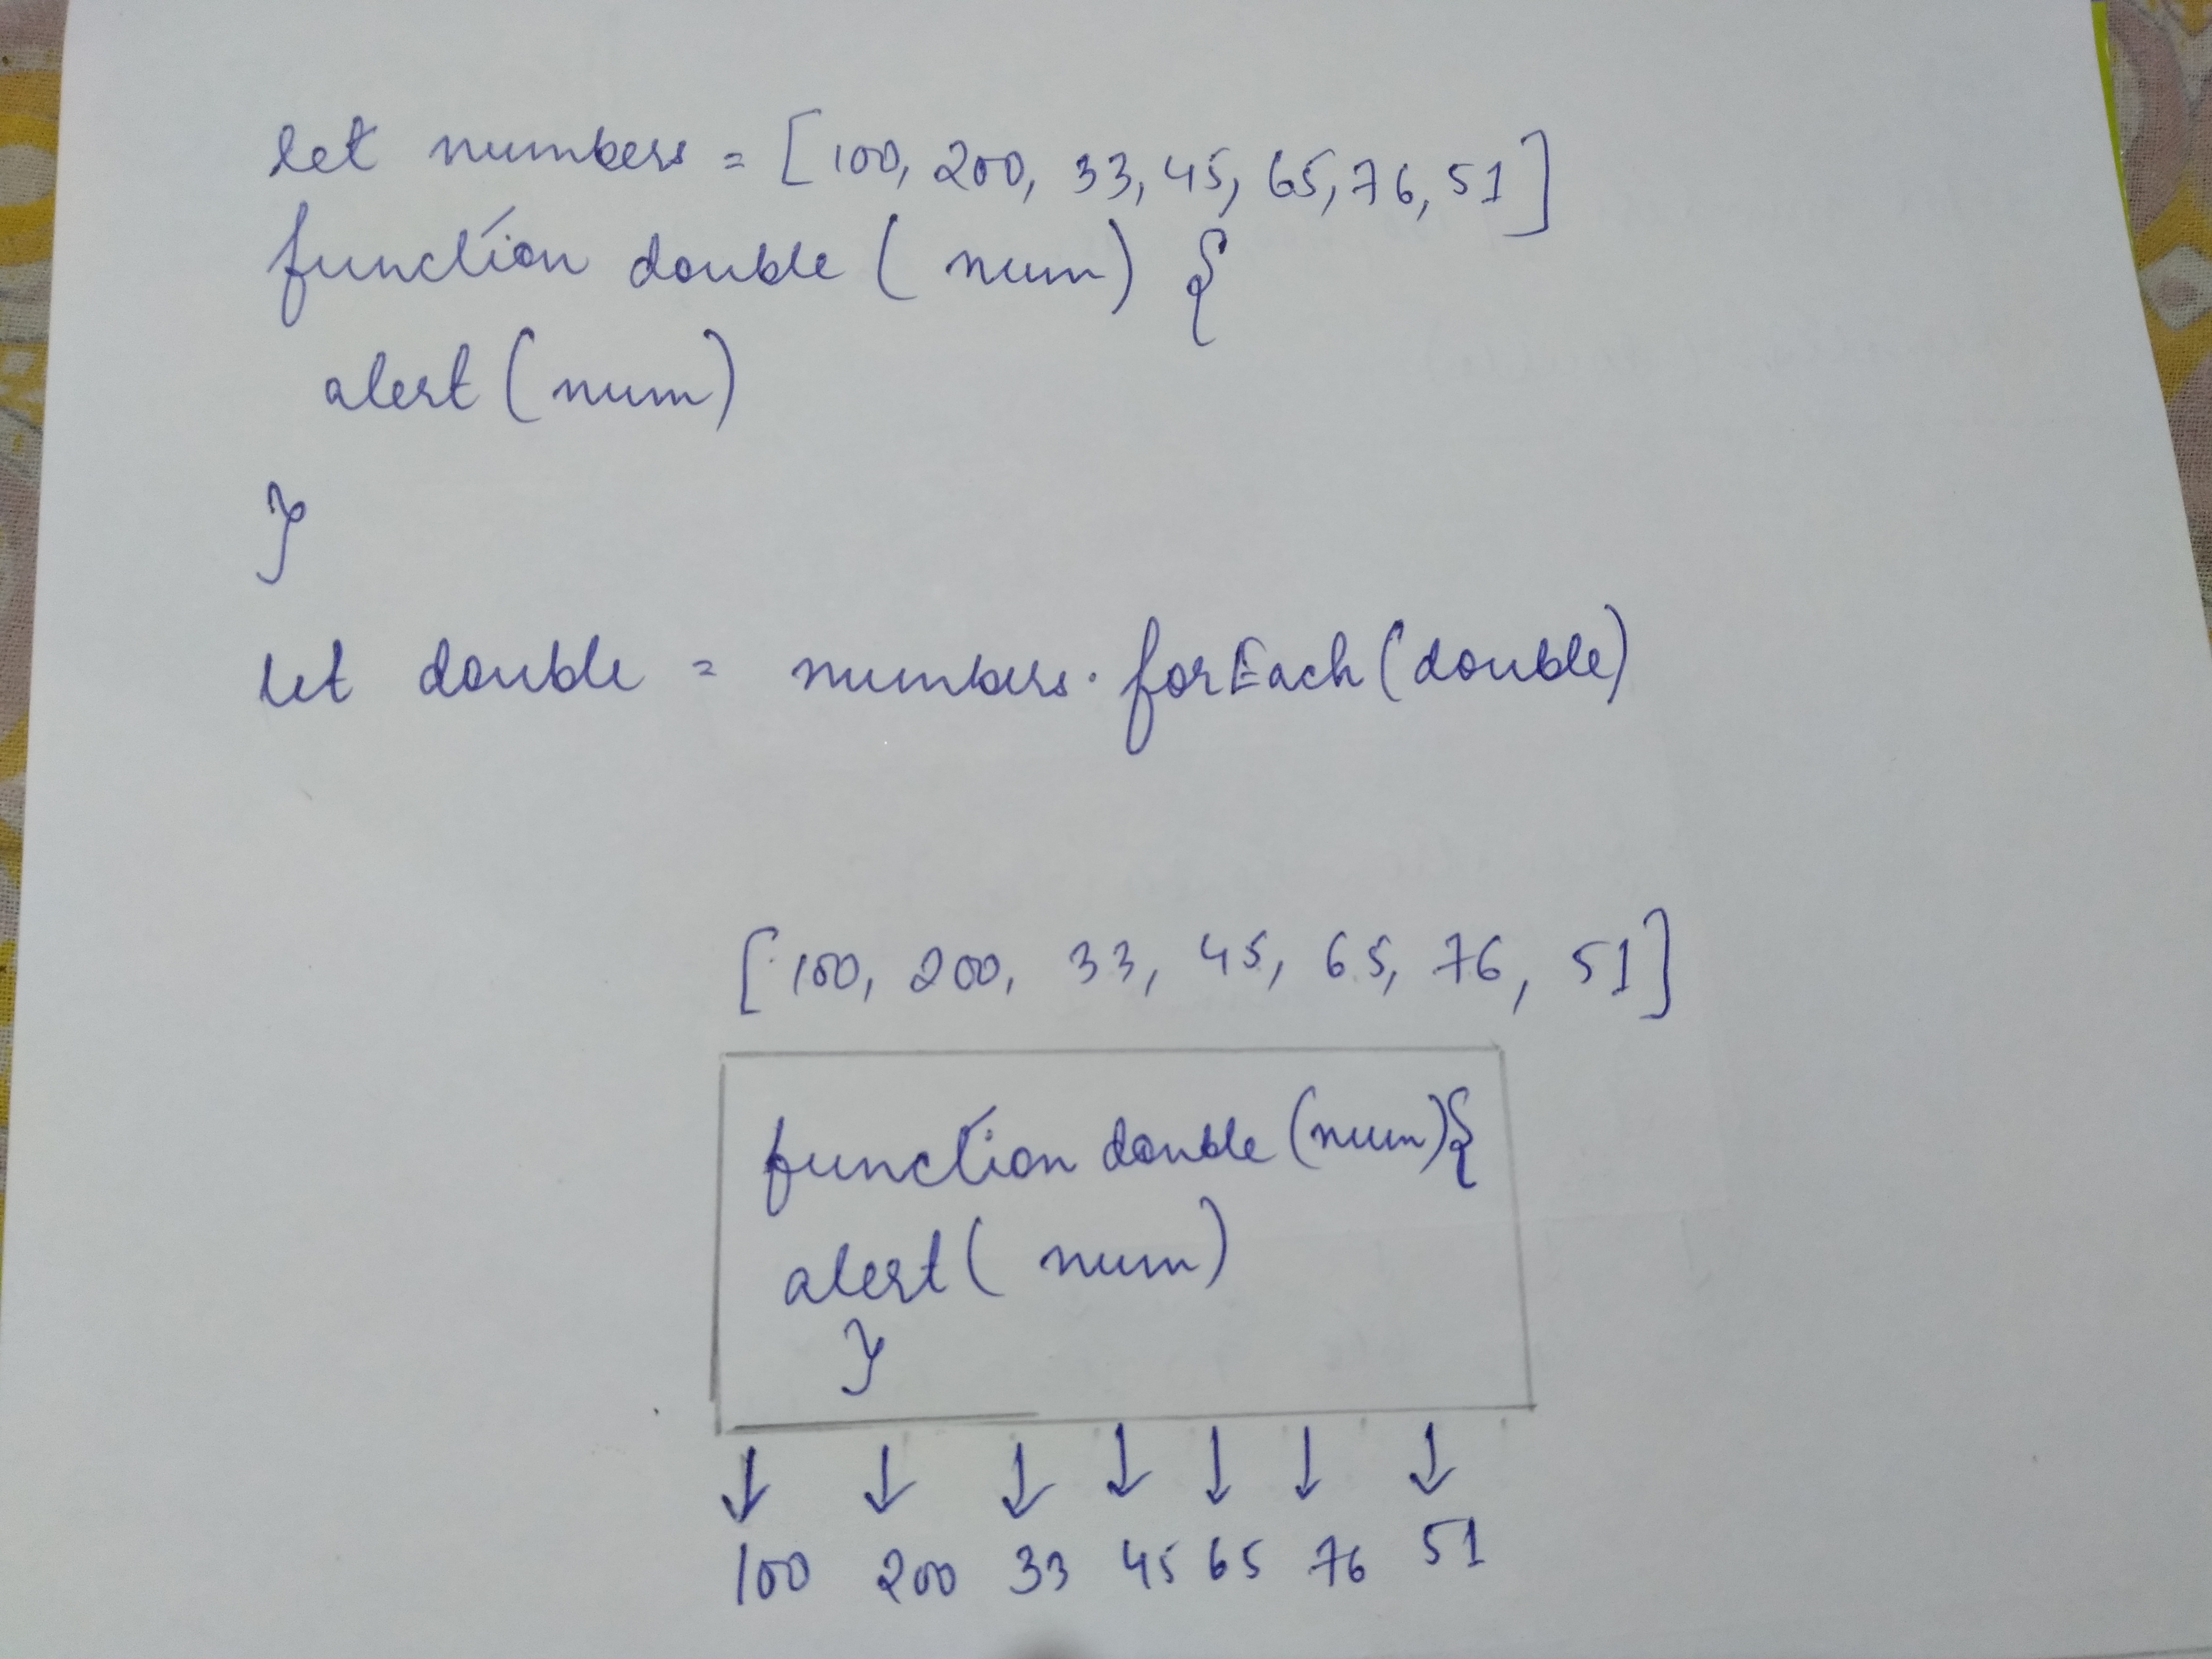 let numbers = [100, 200, 33, 45, 65, 76, 51]
function double ( num) {
alert (num)
}
let double = numbers.forEach(double)
[100, 200, 33, 45, 65, 76, 51]
function double (num){
alert( num)
}
↓ ↓ ↓ ↓ ↓ ↓ ↓
100 200 33 45 65 76 51